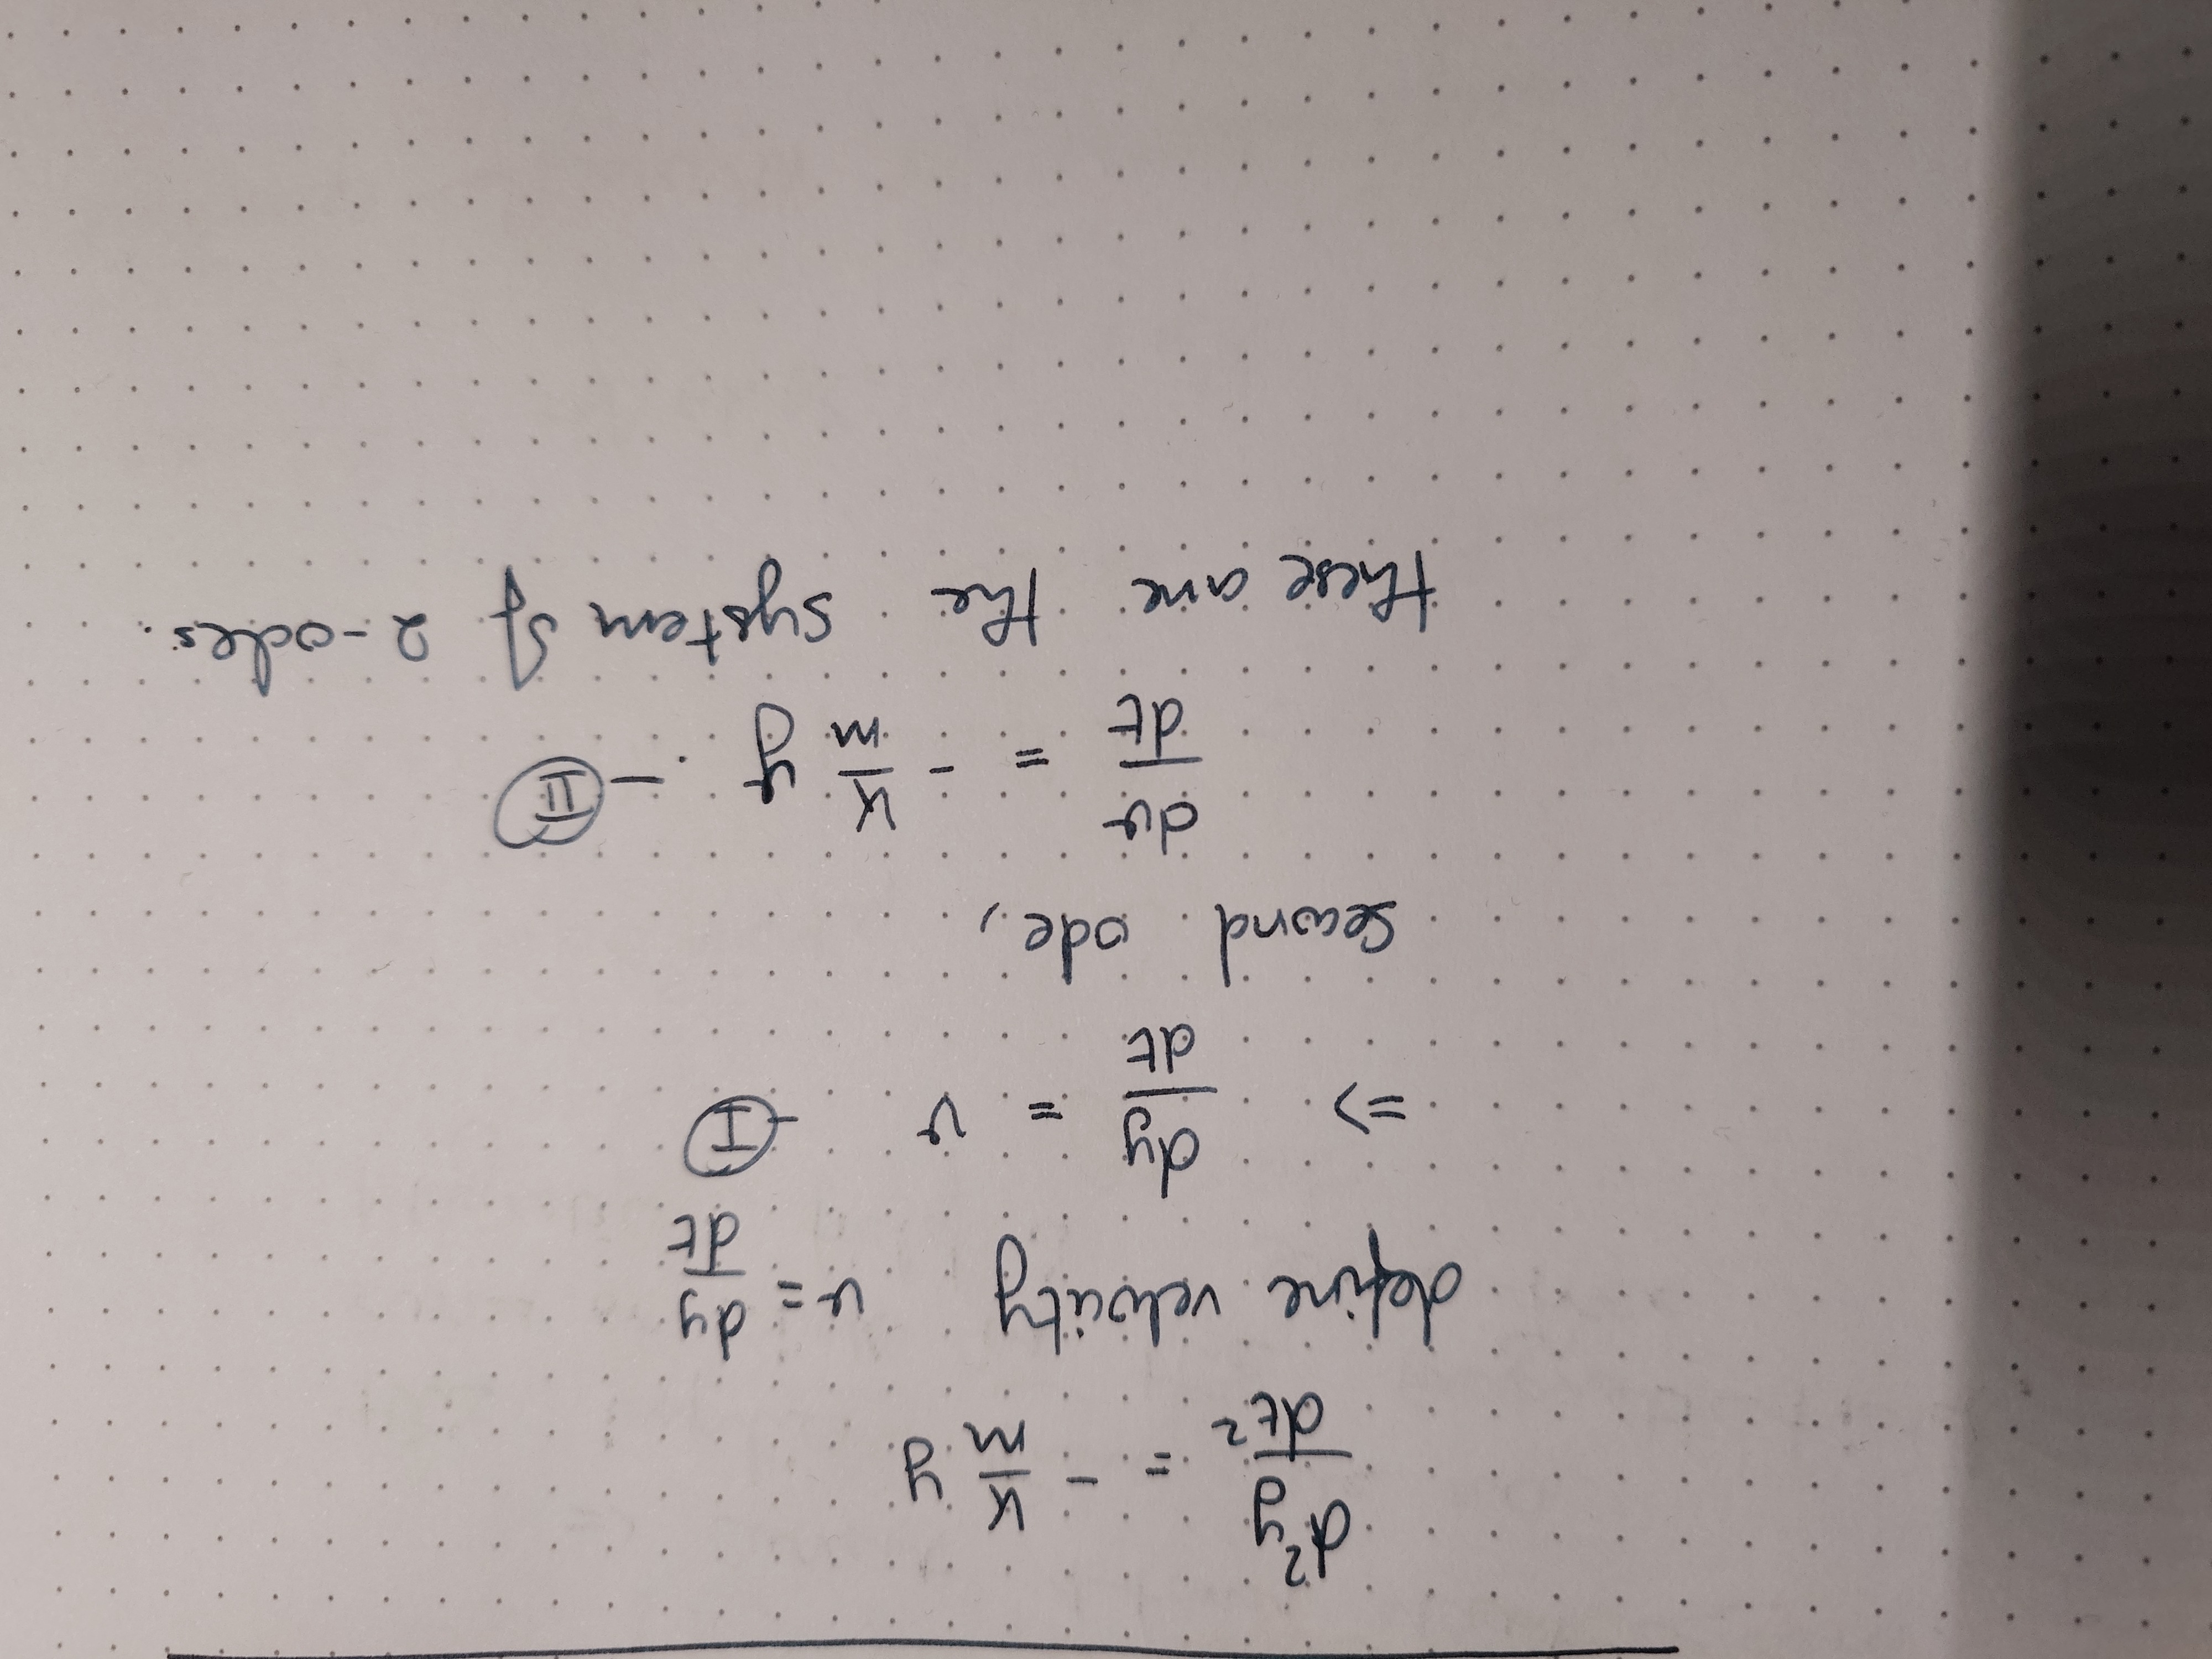 d²y/dt² = - k/m y
define velocity v = dy/dt
=> dy/dt = v - I
second ode,
dv/dt = - k/m y . - II
these are the system of 2-odes.